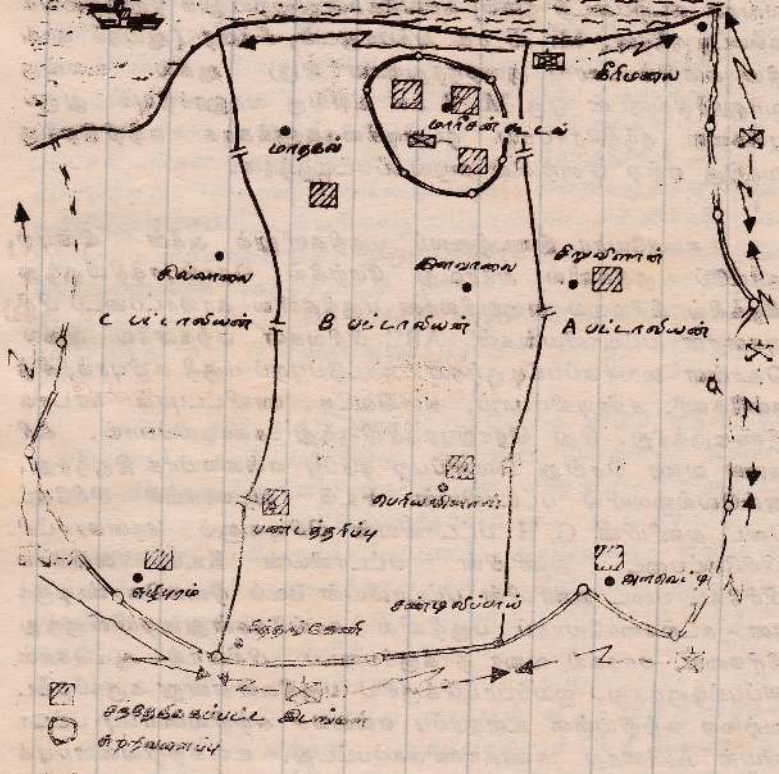 கீரிமலை
மாரீசன் கூடல்
மாதகல்
சிறுவிளான்
இளவாலை
சில்லாலை
C பட்டாலியன்
B பட்டாலியன்
A பட்டாலியன்
பெரியவிளான்
பண்டத்தரிப்பு
அளவெட்டி
சண்டிலிப்பாய்
சித்தங்கேணி
சந்தேகிக்கப்பட்ட இடங்கள்
சுற்றிவளைப்பு